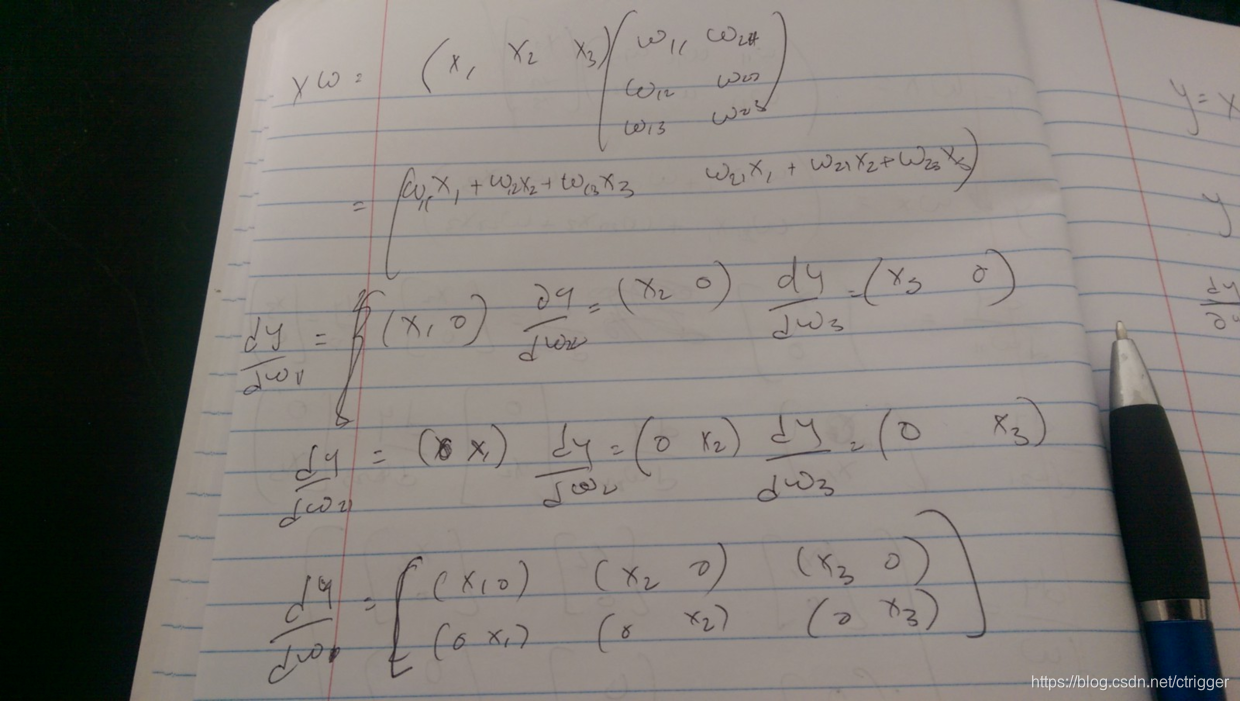 xω = (x₁ x₂ x₃) (ω₁₁ ω₂₁
ω₁₂ ω₂₂
ω₁₃ ω₂₃)
= (ω₁₁x₁ + ω₁₂x₂ + ω₁₃x₃ ω₂₁x₁ + ω₂₁x₂ + ω₂₃x₃)
dy/dω₁₁ = (x₁ 0) ∂y/dω₁₂ = (x₂ 0) dy/dω₁₃ = (x₃ 0)
dy/dω₂₁ = (0 x₁) dy/dω₂₂ = (0 x₂) dy/dω₂₃ = (0 x₃)
dy/dω = [(x₁ 0) (x₂ 0) (x₃ 0)
(0 x₁) (0 x₂) (0 x₃)]
y = x
y
https://blog.csdn.net/ctrigger